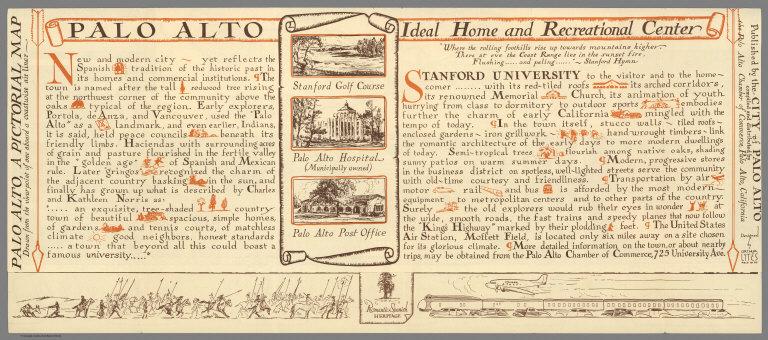 PALO ALTO PICTORIAL MAP
PALO ALTO
New and modern city ~ yet reflects the
Spanish tradition of the historic past in
its homes and commercial institutions. ¶The
town is named after the tall redwood tree rising
at the northwest corner of the community above the
oaks typical of the region. Early explorers,
Portola, de Anza, and Vancouver, used the "Palo
Alto" as a landmark, and even earlier, Indians,
it is said, held peace councils beneath its
friendly limbs. Haciendas with surrounding acres
of grain and pasture flourished in the fertile valley
in the "golden age" of Spanish and Mexican
rule. Later gringos recognized the charm of
the adjacent country basking in the sun, and
finally has grown up what is described by Charles
and Kathleen Norris as:
..... an exquisite, tree-shaded country-
town of beautiful spacious, simple homes,
of gardens and tennis courts, of matchless
climate good neighbors, honest standards
..... a town that beyond all this could boast a
famous university....."
Stanford Golf Course
Palo Alto Hospital
(Municipally owned)
Palo Alto Post Office
Ideal Home and Recreational Center
"Where the rolling foothills rise up towards mountains higher~
There at eve the Coast Range lies in the sunset fire,
Flushing..... and paling....." ~ Stanford Hymn
STANFORD UNIVERSITY to the visitor and to the home-
comer ........ with its red-tiled roofs its arched corridors,
its renowned Memorial Church, its animation of youth
hurrying from class to dormitory to outdoor spots embodies
further the charm of early California mingled with the
tempo of today. ¶In the town itself, stucco walls ~ tiled roofs~
enclosed gardens ~ iron grillwork hand wrought timbers ~ link
the romantic architecture of the early days to more modern dwellings
of today. Semi-tropical trees flourish among native oaks, shading
livery patios on warm summer days. ¶Modern, progressive stores
in the business district on spotless, well-lighted streets serve the community
with old-time courtesy and friendliness. ¶Transportation by air
motor rail and bus is afforded by the most modern
equipment to metropolitan centers and to other parts of the country.
Surely the old explorers would rub their eyes in wonder at
the wide, smooth roads, the fast trains and speedy planes that now follow
the "Kings Highway" marked by their plodding feet. ¶The United States
Air Station, Moffett Field, is located only six miles away on a site chosen
for its glorious climate. ¶More detailed information on the town, or about nearby
trips, may be obtained from the Palo Alto Chamber of Commerce, 725 University Ave.
Published by the CITY of PALO ALTO
the Palo Alto Chamber of Commerce, Palo Alto, California
Romantic Spanish
HERITAGE